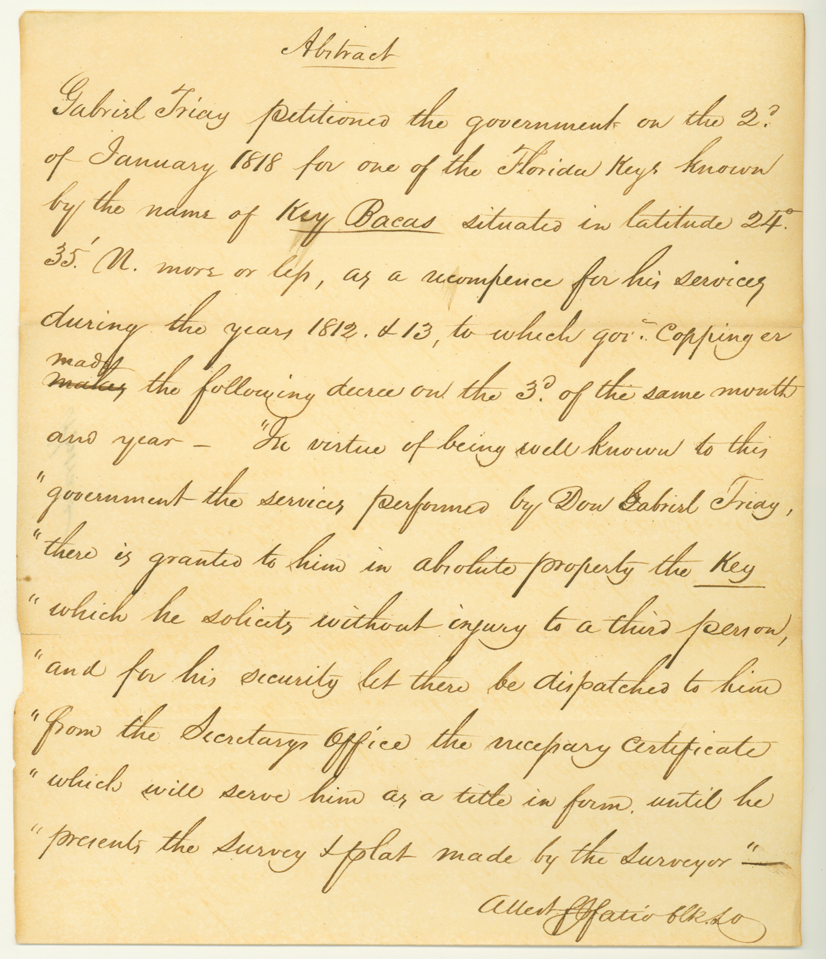 Abstract
Gabriel Triay petitioned the government on the 2d.
of January 1818 for one of the Florida Keys known
by the name of Key Bacas situated in latitude 24°.
35.' N. more or less, as a recompence for his services
during the years 1812. & 13, to which govr. Coppinger
made
makes the following decree on the 3d. of the same month
and year — "In virtue of being well known to this
"government the services performed by Don Gabriel Triay,
"there is granted to him in absolute property the Key
"which he solicits without injury to a third person,
"and for his security let there be dispatched to him
"from the Secretarys Office the necessary certificate
"which will serve him as a title in form. until he
"presents the survey & plat made by the surveyor"—
Attest Fatio Clk. LO